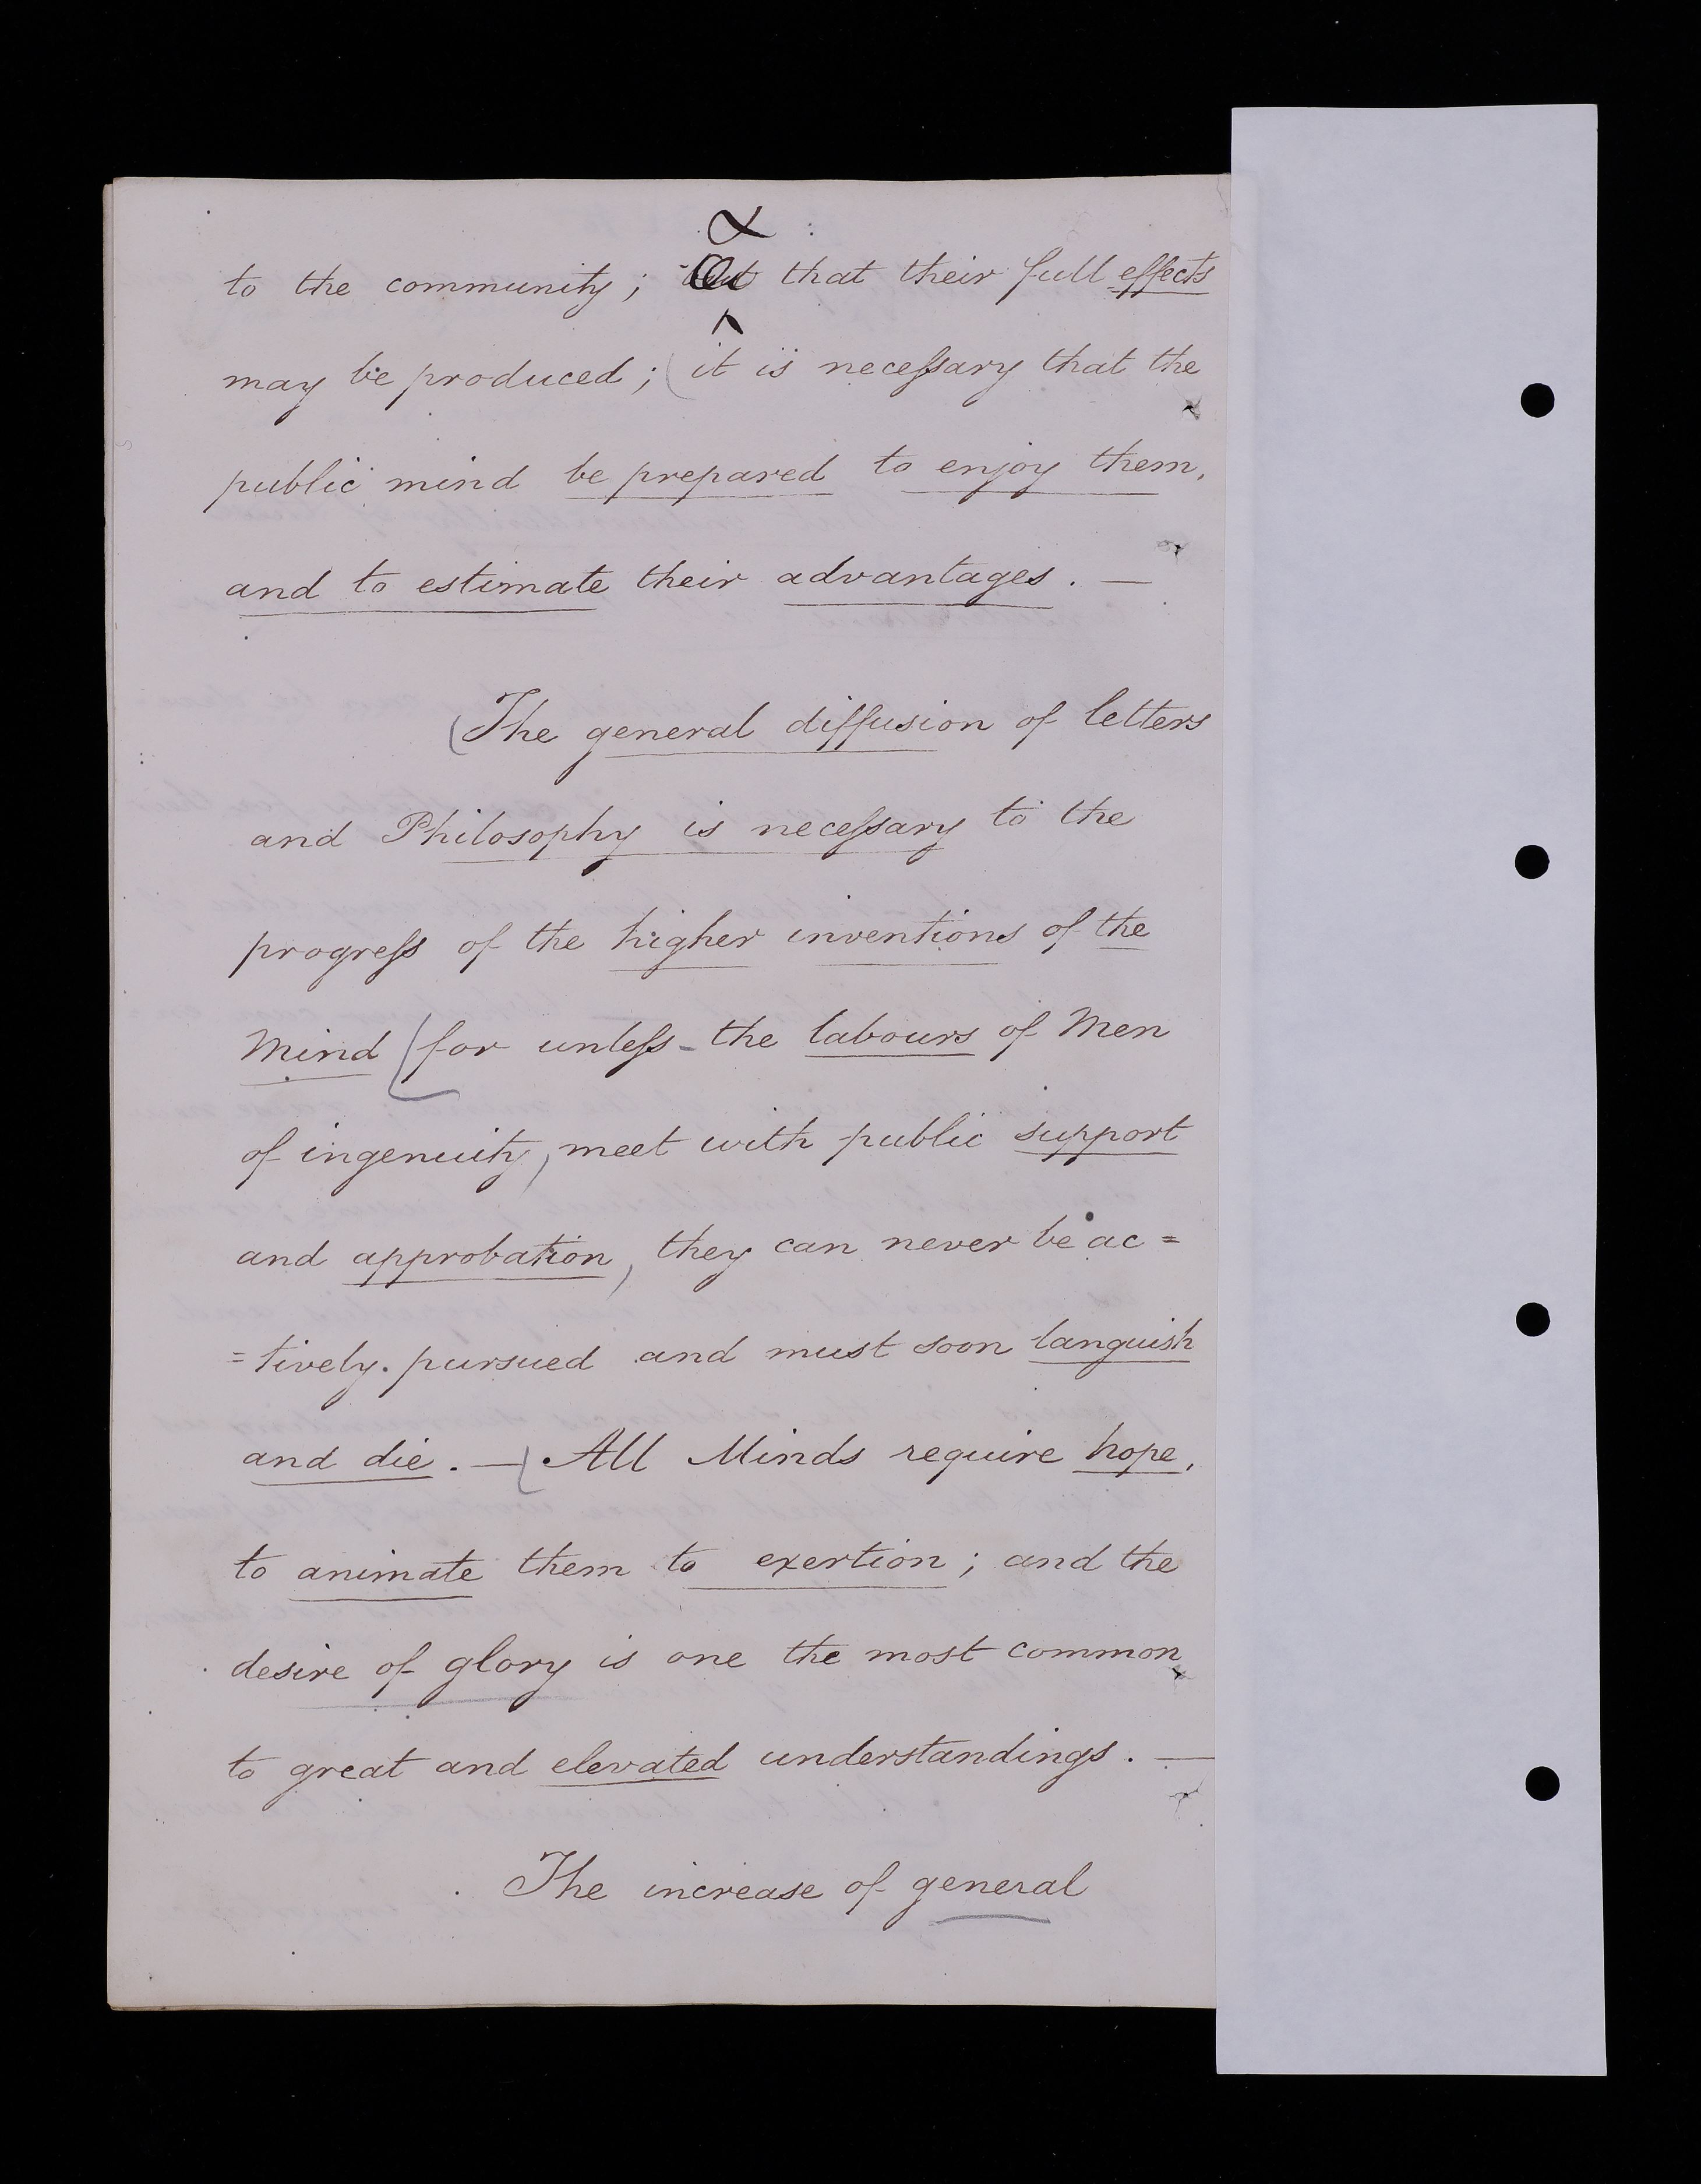 &
to the community; but that their full effects
may be produced; (it is necessary that the
public mind be prepared to enjoy them,
and to estimate their advantages. —
(The general diffusion of letters
and Philosophy is necessary to the
progress of the higher inventions of the
Mind (for unless the labours of Men
of ingenuity, meet with public support
and approbation, they can never be ac=
=tively. pursued and must soon languish
and die. — (All Minds require hope,
to animate them to exertion; and the
desire of glory is one the most common
to great and elevated understandings. —
The increase of general